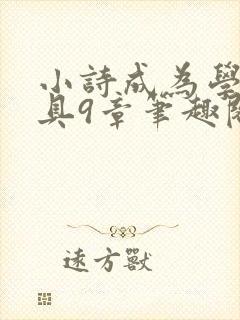 小詩成為學
具9章筆趣閱
遠方獸